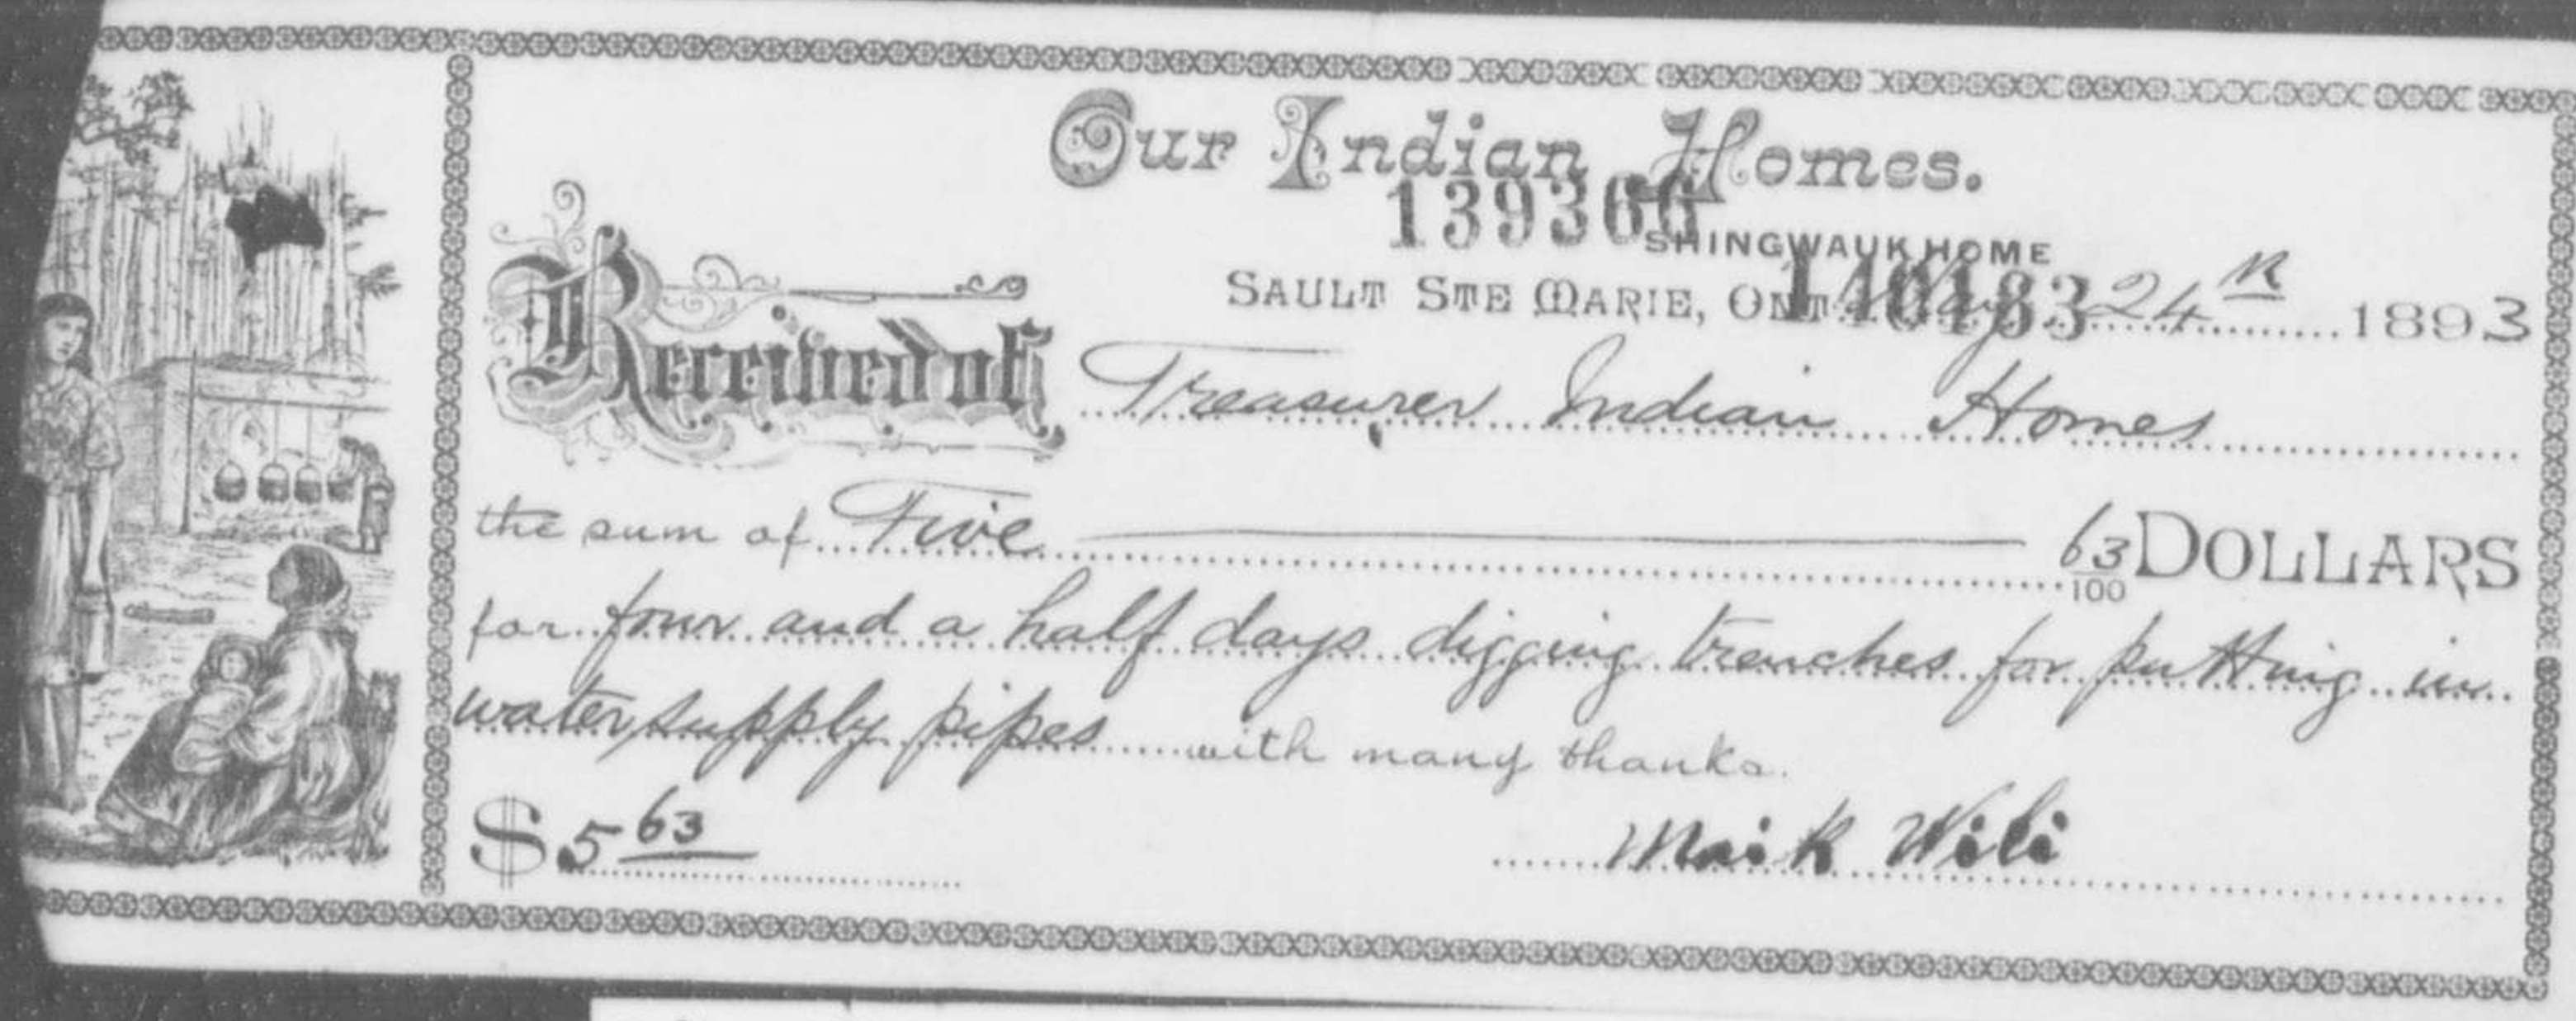 Our Indian Homes.
139366
SHINGWAUK HOME
SAULT STE MARIE, ONT. May 24th 1893
140183
Received of Treasurer Indian Homes
the sum of Five 63/100 DOLLARS
for four and a half days digging trenches for putting in
water supply pipes with many thanks.
$ 5 63 Maik Wili